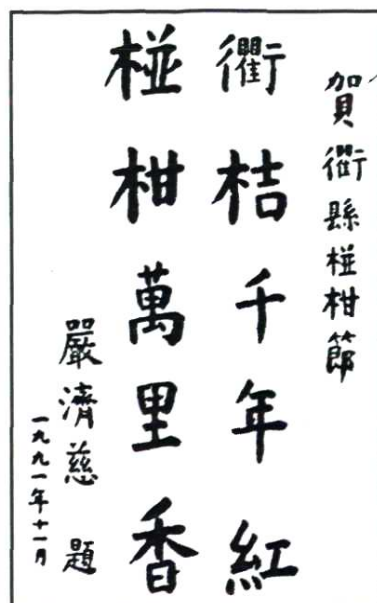 賀衢縣椪柑節
衢桔千年紅
椪柑萬里香
嚴濟慈 題
一九九一年十一月